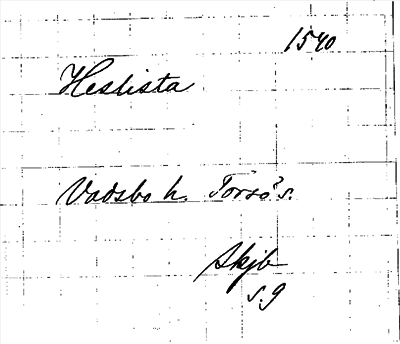 1540
Heslista
Vadsbo h. Torsö? s.
Skjb
s. 9